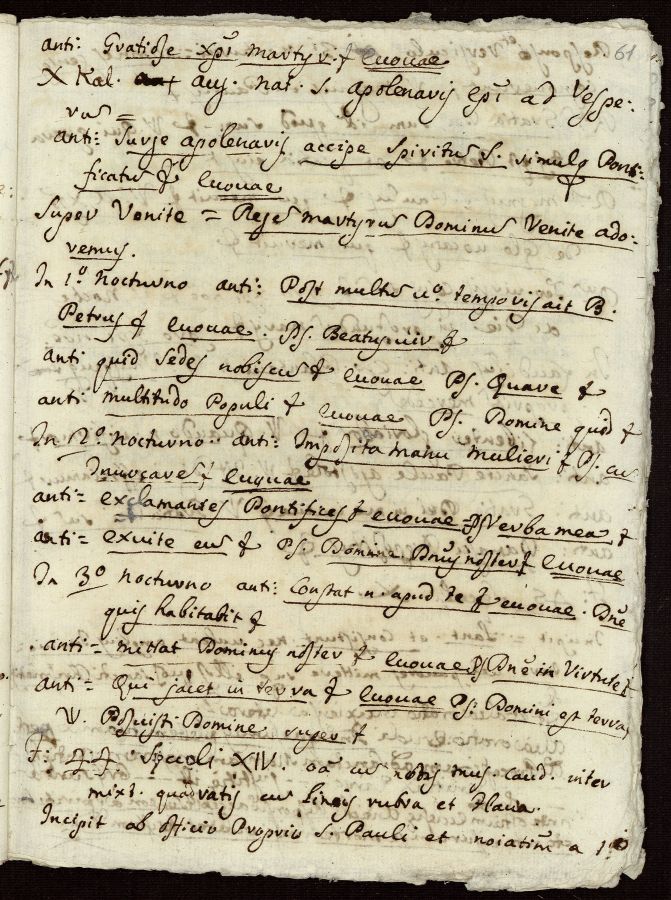 61
anti: Gratidze xpi martyr. & Euouae
X Kal. aug. nat. S. apolenaris epi ad Vespe:
ras =
anti: Surge apolenaris accipe Spiritus S. simulq Ponti:
ficatus & Euouae
Super Venite = Reges martyrus Dominus Venite ado:
remus.
In 1.º Nocturno anti: Post multus u.º temporis ait B.
Petrus & Euouae. Ps. Beatus vir &
anti quid sedes nobiscus & Euouae Ps. Quare &
anti multitudo Populi & Euouae Ps. Domine quid &
In 2.º Nocturno anti: Imposita manu mulieri & Ps. cus
Invocares & Euouae
anti = exclamantes Pontifices & euouae = Ps Verba mea &
anti = exuite eus & Ps. Domine Dnus noster & Euouae
In 3º nocturno anti: Constat n. apud te & euouae. Dne
quis habitabit &
anti = mittat Dominus noster & Euouae Ps Dne in Virtute &
anti = Qui jacet in terra & Euouae Ps: Domini est terra,
V. Posuisti Domine super &
F: 44 Seculi XIV. oa cus notis mus. caud. inter
mixt. quadratis cus lineis rubra et flava.
Incipit ab officio Proprio S. Pauli et noiatim a 1.º